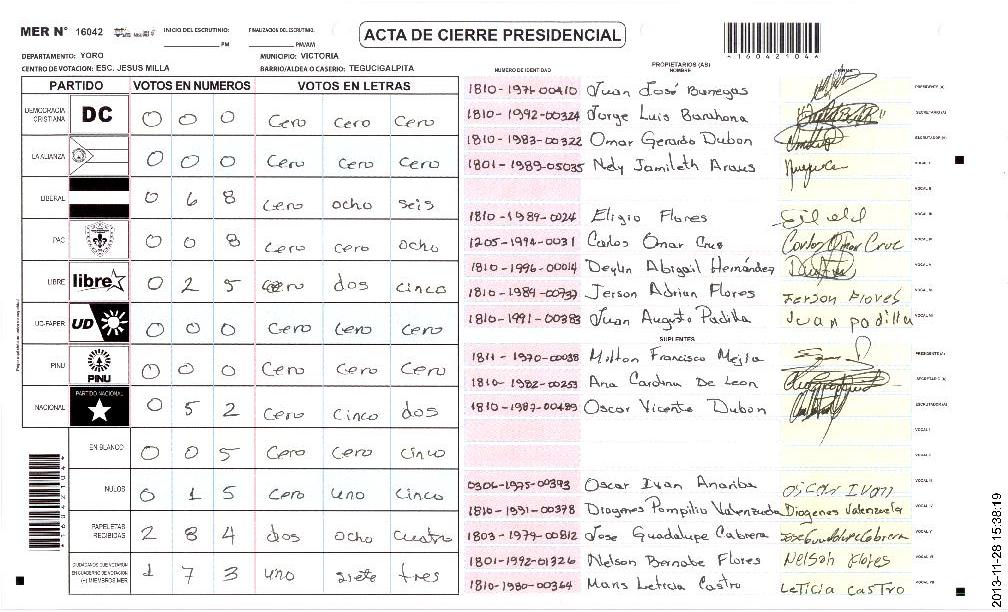 MER Nº 16042 INICIO DEL ESCRUTINIO: PM FINALIZACION DEL ESCRUTINIO: PM/AM ACTA DE CIERRE PRESIDENCIAL
*160421041*
DEPARTAMENTO: YORO MUNICIPIO: VICTORIA
CENTRO DE VOTACION: ESC. JESUS MILLA BARRIO/ALDEA O CASERIO: TEGUCIGALPITA
PARTIDO VOTOS EN NUMEROS VOTOS EN LETRAS
DEMOCRACIA CRISTIANA DC 0 0 0 Cero cero cero
LA ALIANZA 0 0 0 Cero cero cero
LIBERAL 0 6 8 Cero ocho seis
PAC 0 0 8 Cero cero ocho
LIBRE libre 0 2 5 cero dos cinco
UD-FAPER UD 0 0 0 Cero Cero Cero
PINU PINU 0 0 0 Cero Cero Cero
NACIONAL PARTIDO NACIONAL 0 5 2 Cero Cinco dos
EN BLANCO 0 0 5 Cero Cero cinco
NULOS 0 1 5 Cero uno Cinco
PAPELETAS RECIBIDAS 2 8 4 dos ocho cuatro
CIUDADANOS QUE VOTARON EN CUADERNO DE VOTACION (+) MIEMBROS MER 1 7 3 uno siete tres
NUMERO DE IDENTIDAD PROPIETARIOS (AS) NOMBRE
1810-1971-00410 Juan José Banegas PRESIDENTE (A)
1810-1992-00324 Jorge Luis Barahona SECRETARIO (A)
1810-1983-00322 Omar Gerardo Dubon ESCRUTADOR (A)
1801-1989-05035 Nely Jamileth VOCAL I
VOCAL II
1810-1987-0024 Eligio Flores VOCAL III
1205-1994-0031 Carlos Omar Cruz Carlos Omar Cruz VOCAL IV
1810-1996-00014 Deylin Abigail Hernández VOCAL V
1810-1989-00737 Jerson Adrian Flores Jerson Flores VOCAL VI
1810-1991-00383 Juan Augusto Padilla Juan padilla VOCAL VII
SUPLENTES
1811-1970-00038 Milton Francisco Mejia PRESIDENTE (A)
1810-1982-00253 Ana Carolina De Leon SECRETARIO (A)
1810-1987-00489 Oscar Vicente Dubon ESCRUTADOR (A)
VOCAL I
VOCAL II
0306-1975-00393 Oscar Ivan Oscar Ivan VOCAL III
1810-1951-00378 Diogenes Pompilio Valenzuela Diogenes Valenzuela VOCAL IV
1803-1979-00812 Jose Guadalupe Cabrera Jose Guadalupe Cabrera VOCAL V
1801-1992-01326 Nelson Bernabe Flores Nelson Flores VOCAL VI
1810-1980-00364 Maris Leticia Castro Leticia Castro VOCAL VII
*160421041*
2013-11-28 15:38:19